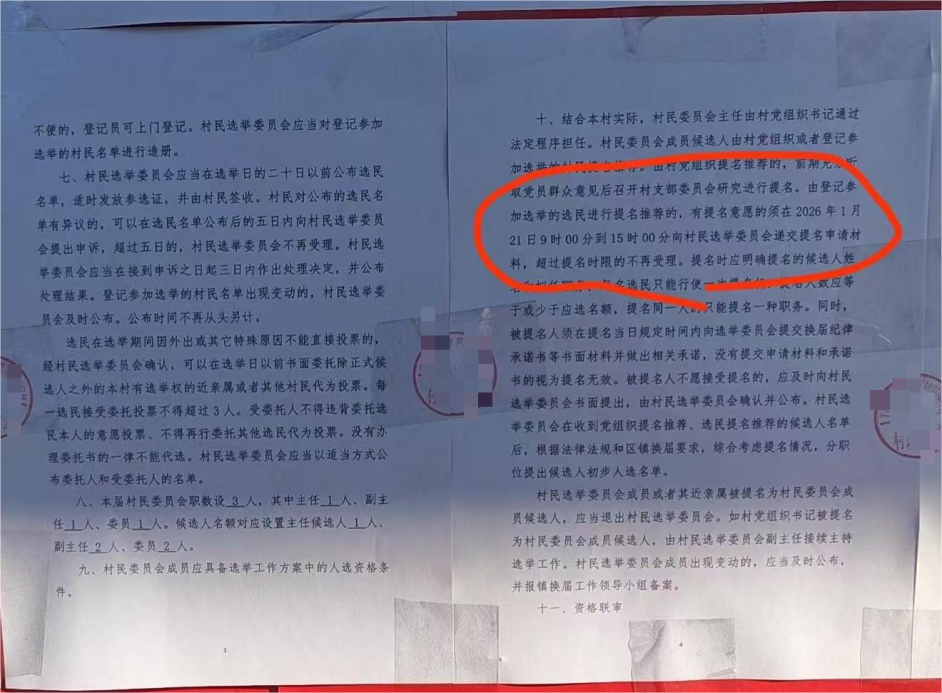 不便的，登记员可上门登记。村民选举委员会应当对登记参加
选举的村民名单进行造册。
七、村民选举委员会应当在选举日的二十日以前公布选民
名单，适时发放参选证，并由村民签收。村民对公布的选民名
单有异议的，可以在选民名单公布后的五日内向村民选举委员
会提出申诉，超过五日的，村民选举委员会不再受理。村民选
举委员会应当在接到申诉之日起三日内作出处理决定，并公布
处理结果。登记参加选举的村民名单出现变动的，村民选举委
员会及时公布。公布时间不再从头另计。
选民在选举期间因外出或其它特殊原因不能直接投票的，
经村民选举委员会确认，可以在选举日以前书面委托除正式候
选人之外的本村有选举权的近亲属或者其他村民代为投票。每
一选民接受委托投票不得超过3人。受委托人不得违背委托选
民本人的意愿投票、不得再行委托其他选民代为投票。没有办
理委托书的一律不能代选。村民选举委员会应当以适当方式公
布委托人和受委托人的名单。
八、本届村民委员会职数设 3 人，其中主任 1 人、副主
任 1 人、委员 1 人。候选人名额对应设置主任候选人 1 人、
副主任 2 人、委员 2 人。
九、村民委员会成员应具备选举工作方案中的人选资格条
件。
3
十、结合本村实际，村民委员会主任由村党组织书记通过
法定程序担任。村民委员会成员候选人由村党组织或者登记参
加选举的村民提名推荐。由村党组织提名推荐的，前期充分听
取党员群众意见后召开村支部委员会研究进行提名。由登记参
加选举的选民进行提名推荐的，有提名意愿的须在 2026 年 1 月
21 日 9 时 00 分到 15 时 00 分向村民选举委员会递交提名申请材
料，超过提名时限的不再受理。提名时应明确提名的候选人姓
名和拟任职务，每名选民只能行使一次提名权，提名人数应等
于或少于应选名额，提名同一人的只能提名一种职务。同时，
被提名人须在提名当日规定时间内向选举委员会提交换届纪律
承诺书等书面材料并做出相关承诺，没有提交申请材料和承诺
书的视为提名无效。被提名人不愿接受提名的，应及时向村民
选举委员会书面提出，由村民选举委员会确认并公布。村民选
举委员会在收到党组织提名推荐、选民提名推荐的候选人名单
后，根据法律法规和区镇换届要求，综合考虑提名情况，分职
位提出候选人初步人选名单。
村民选举委员会成员或者其近亲属被提名为村民委员会成
员候选人，应当退出村民选举委员会。如村党组织书记被提名
为村民委员会成员候选人，由村民选举委员会副主任接续主持
选举工作。村民选举委员会成员出现变动的，应当及时公布，
并报镇换届工作领导小组备案。
十一、资格联审
4